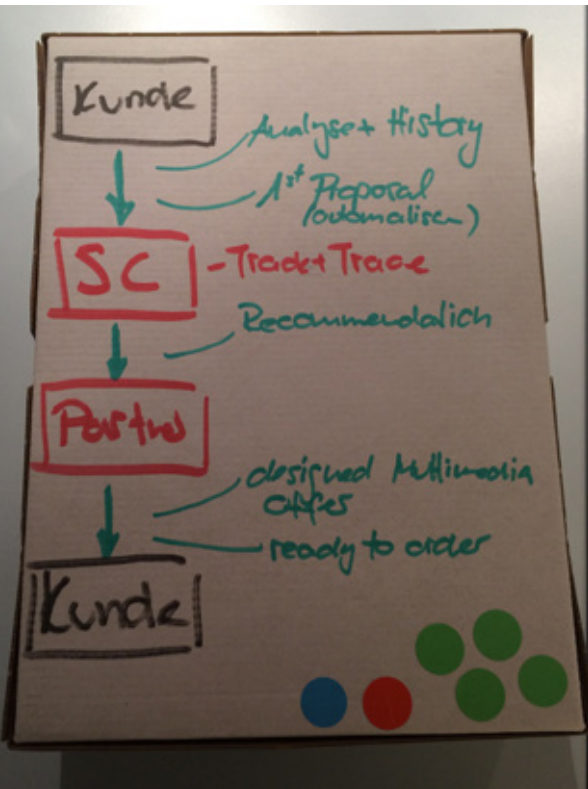 Kunde
Analyse + History
1st Proposal
(automatisch)
SC - Track + Trace
Recommendation
Partner
designed Multimedia
offer
ready to order
Kunde